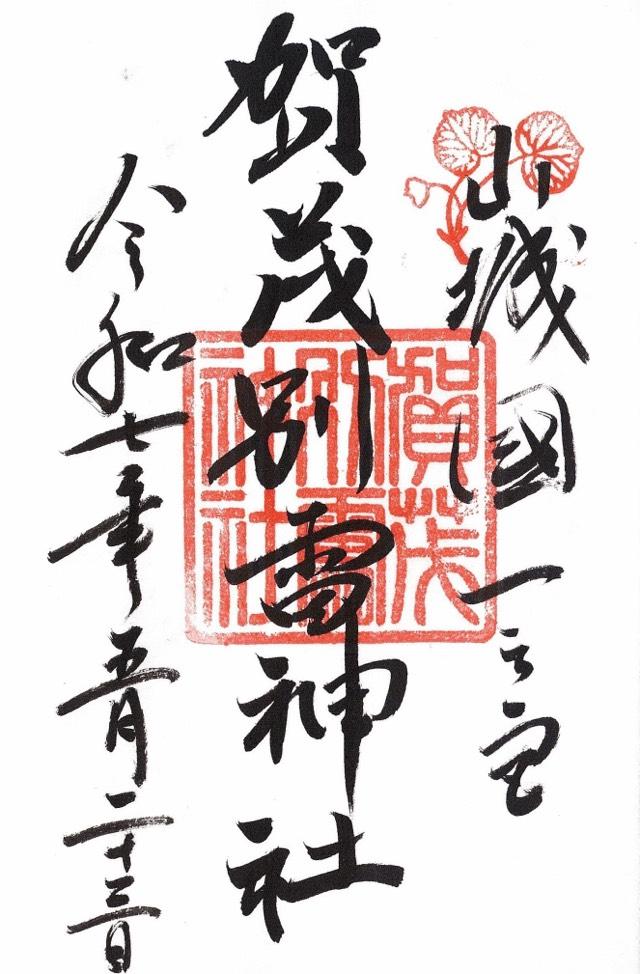 山城國一之宮
賀茂別雷神社
令和七年五月二十三日
賀茂
別雷
神社